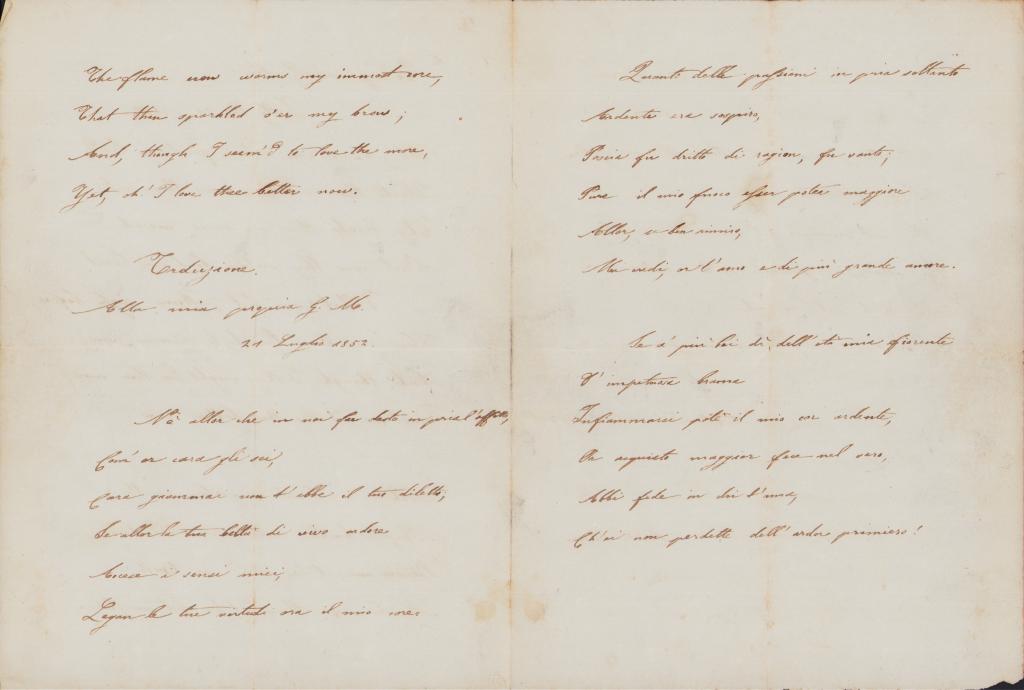 The flame now warms my inmost core,
That then sparkled o'er my brow;
And, though I seem'd to love thee more,
Yet, oh! I love thee better now.
Traduzione.
Alla mia G. M.
21 Luglio 1852
No allor che in noi fu desto in pria l'affetto,
Com' or cara gli sei,
Cara giammai non t'ebbe il tuo diletto;
Se allor la tua beltà di vivo ardore
Accese i sensi miei,
Legan le tue virtudi ora il mio core.
Quanto delle passioni in pria soltanto
Ardente era sospiro,
Poscia fu dritto di ragion, fu vanto;
Pure il mio fuoco esser potea maggiore
Allor, se ben rimiro,
Ma credi, or l'amo e di più grande amore.
Se a' più bei dì dell' età mia fiorente
D' impetuosa brama
Infiammarsi potè il mio cor ardente,
Or acquistò maggior foco nel vero,
Abbi fede in chi t'ama,
Ch'ei non perdette dell' ardor primiero!